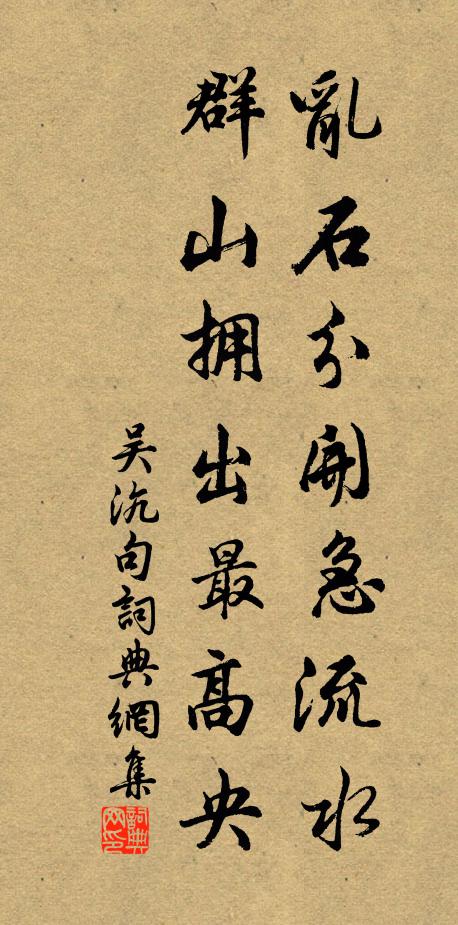 亂石分開急流水
群山拥出最高央
吴沆句詞典網集
詞典网印